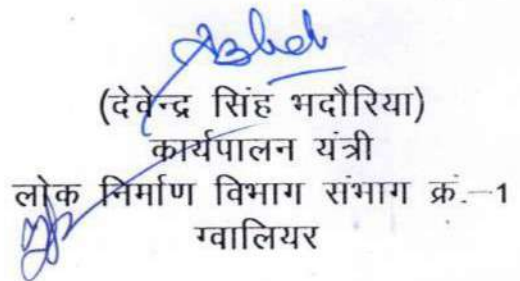 (देवेन्द्र सिंह भदौरिया)
कार्यपालन यंत्री
लोक निर्माण विभाग संभाग क्रं.–1
ग्वालियर